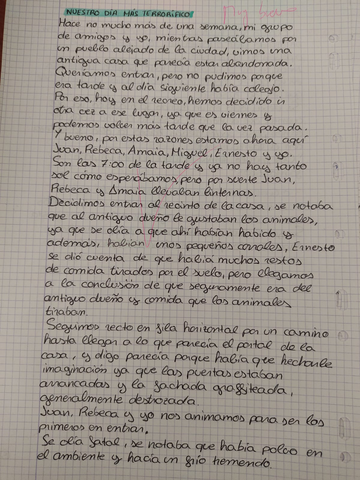 NUESTRO DÍA MÁS TERRORÍFICO
Hace no mucho más de una semana, mi grupo
de amigos y yo, mientras paseábamos por
un pueblo alejado de la ciudad, vimos una
antigua casa que parecía estar abandonada.
Queríamos entrar, pero no pudimos porque
era tarde y al día siguiente había colegio.
Por eso, hoy en el recreo, hemos decidido ir
otra vez a ese lugar, ya que es viernes y
podemos volver más tarde que la vez pasada.
Y bueno, por estas razones estamos ahora aquí
Juan, Rebeca, Amaia, Miguel, Ernesto y yo.
Son las 7:00 de la tarde y ya no hay tanto
sol cómo esperábamos, pero por suerte Juan,
Rebeca y Amaia llevaban linternas.
Decidimos entrar al recinto de la casa, se notaba
que al antiguo dueño le gustaban los animales,
ya que se olía a que ahí habían habido y
además, habían unos pequeños corrales, Ernesto
se dió cuenta de que había muchos restos
de comida tirados por el suelo, pero llegamos
a la conclusión de que seguramente era del
antiguo dueño y comida que los animales
tiraban.
Seguimos recto en fila horizontal por un camino
hasta llegar a lo que parecía el portal de la
casa, y digo parecía porque había que hecharle
imaginación ya que las puertas estaban
arrancadas y la fachada graffiteada,
generalmente destrozada.
Juan, Rebeca y yo nos animamos para ser los
primeros en entrar.
Se olía fatal, se notaba que había polvo en
el ambiente y hacía un frío tremendo.